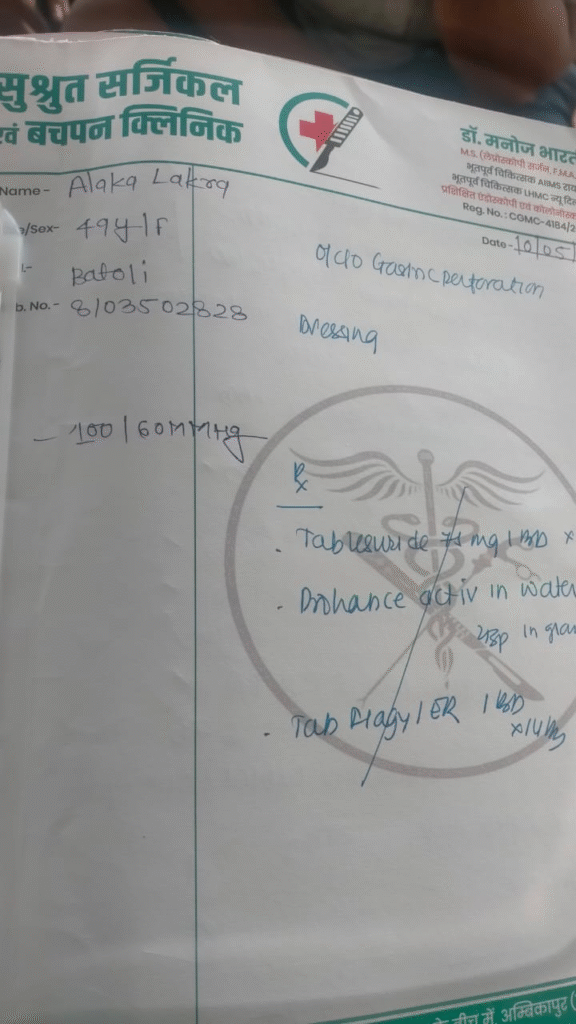 सुश्रुत सर्जिकल
एवं बचपन क्लिनिक
डॉ. मनोज भारत
M.S. (लेप्रोस्कोपी सर्जन, F.M.A.
भूतपूर्व चिकित्सक AIIMS राय
भूतपूर्व चिकित्सक LHMC न्यू दि
प्रशिक्षित एंडोस्कोपी एवं कोलोनोस्
Reg. No.: CGMC-4184/2
Name- Alaka Lakra
/Sex- 49y/F
Date- 10/05/
Batoli
b. No.- 8103502828
O/C/O Gastric perforation
Dressing
- 100/60MMHg
Rx
. Tab mg 1 BD x
. Prohance activ in water
in
. Tab Flagyl ER 1 BD
के बीच में, अम्बिकापुर (